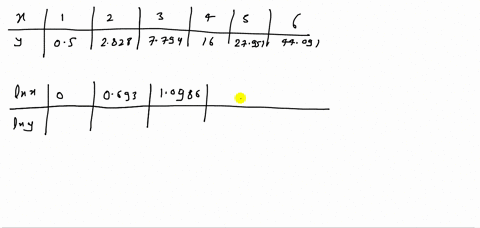 x 1 2 3 4 5 6
y 0.5 2.828 7.794 16 27.951 44.091
ln x 0 0.693 1.0986
ln y